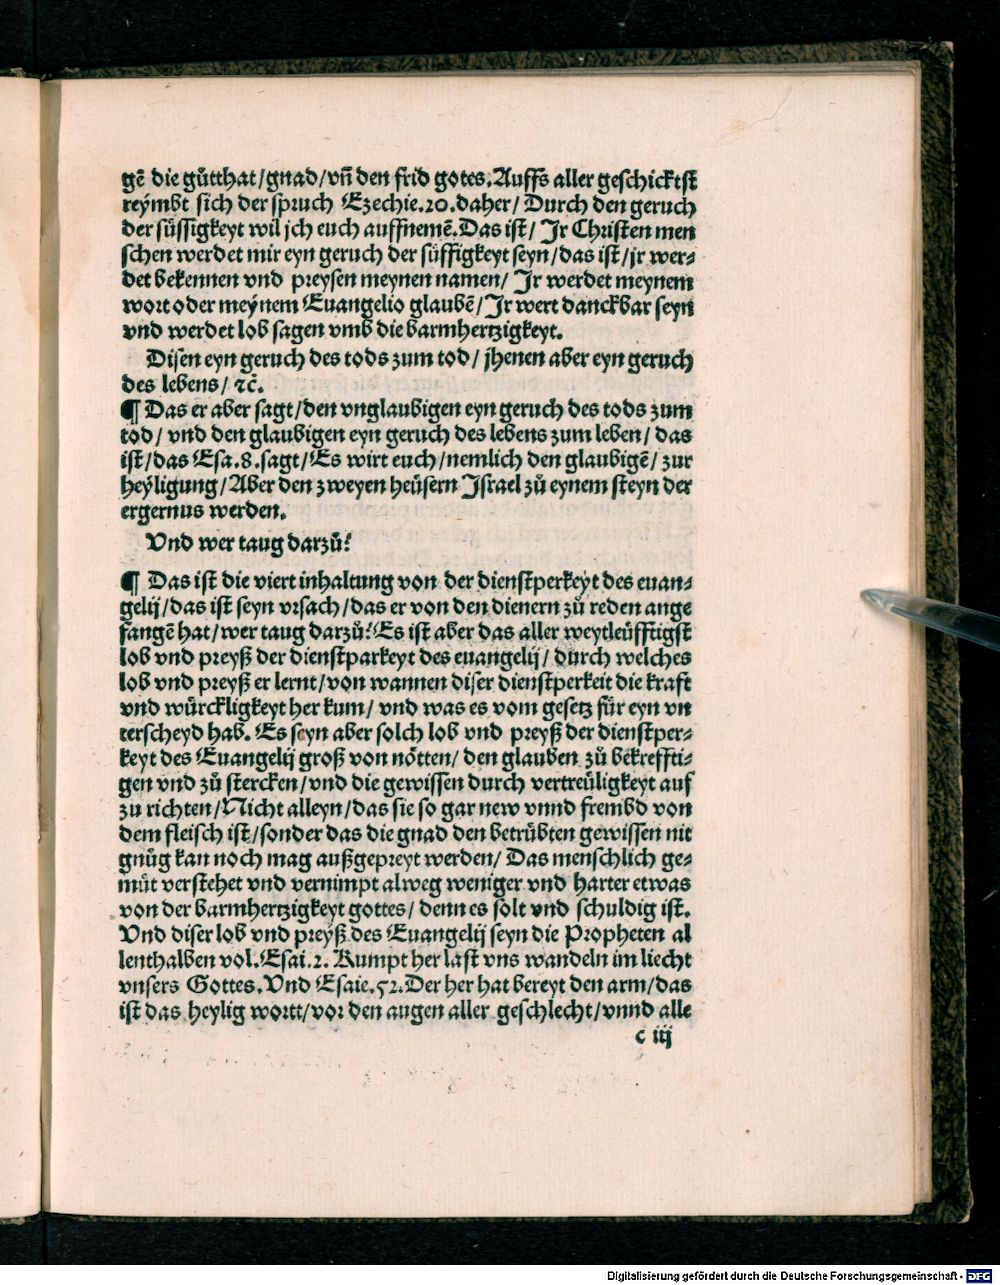 gē die gůtthat/gnad/vñ den frid gotes. Auffs aller geschicktst
reymbt sich der spruch Ezechie.20.daher/ Durch den geruch
der süssigkeyt wil jch euch auffnemē. Das ist/ Jr Christen men
schen werdet mir eyn geruch der süssigkeyt seyn/das ist/jr wer⸗
det bekennen vnd preysen meynen namen/ Jr werdet meynem
wort oder meynem Euangelio glaubē/ Jr wert danckbar seyn
vnd werdet lob sagen vmb die barmhertzigkeyt.
Disen eyn geruch des tods zum tod/ jhenen aber eyn geruch
des lebens/ ⁊c̄.
¶ Das er aber sagt/den vnglaubigen eyn geruch des tods zum
tod/ vnd den glaubigen eyn geruch des lebens zum leben/ das
ist/das Esa.8.sagt/Es wirt euch/nemlich den glaubigē/ zur
heyligung/Aber den zweyen heüsern Jsrael zů eynem steyn der
ergernus werden.
Vnd wer taug darzů?
¶ Das ist die viert inhaltung von der dienstperkeyt des euan⸗
gelij/das ist seyn vrsach/das er von den dienern zů reden ange
fangē hat/wer taug darzů? Es ist aber das aller weytleüfftigst
lob vnd preyß der dienstparkeyt des euangelij/ durch welches
lob vnd preyß er lernt/von wannen diser dienstperkeit die kraft
vnd würckligkeyt her kum/ vnd was es vom gesetz für eyn vn
terscheyd hab. Es seyn aber solch lob vnd preyß der dienstper⸗
keyt des Euangelij groß von nötten/ den glauben zů bekreffti⸗
gen vnd zů stercken/vnd die gewissen durch vertreüligkeyt auf
zu richten/Nicht alleyn/das sie so gar new vnnd frembd von
dem fleisch ist/sonder das die gnad den betrübten gewissen nit
gnůg kan noch mag außgepreyt werden/ Das menschlich ge⸗
müt verstehet vnd vernimpt alweg weniger vnd harter etwas
von der barmhertzigkeyt gottes/ denn es solt vnd schuldig ist.
Vnd diser lob vnd preyß des Euangelij seyn die Propheten al
lenthalben vol. Esai.2. Kumpt her last vns wandeln im liecht
vnsers Gottes. Vnd Esaie.52. Der her hat bereyt den arm/das
ist das heylig wortt/vor den augen aller geschlecht/vnnd alle
c iij
Digitalisierung gefördert durch die Deutsche Forschungsgemeinschaft - DFG